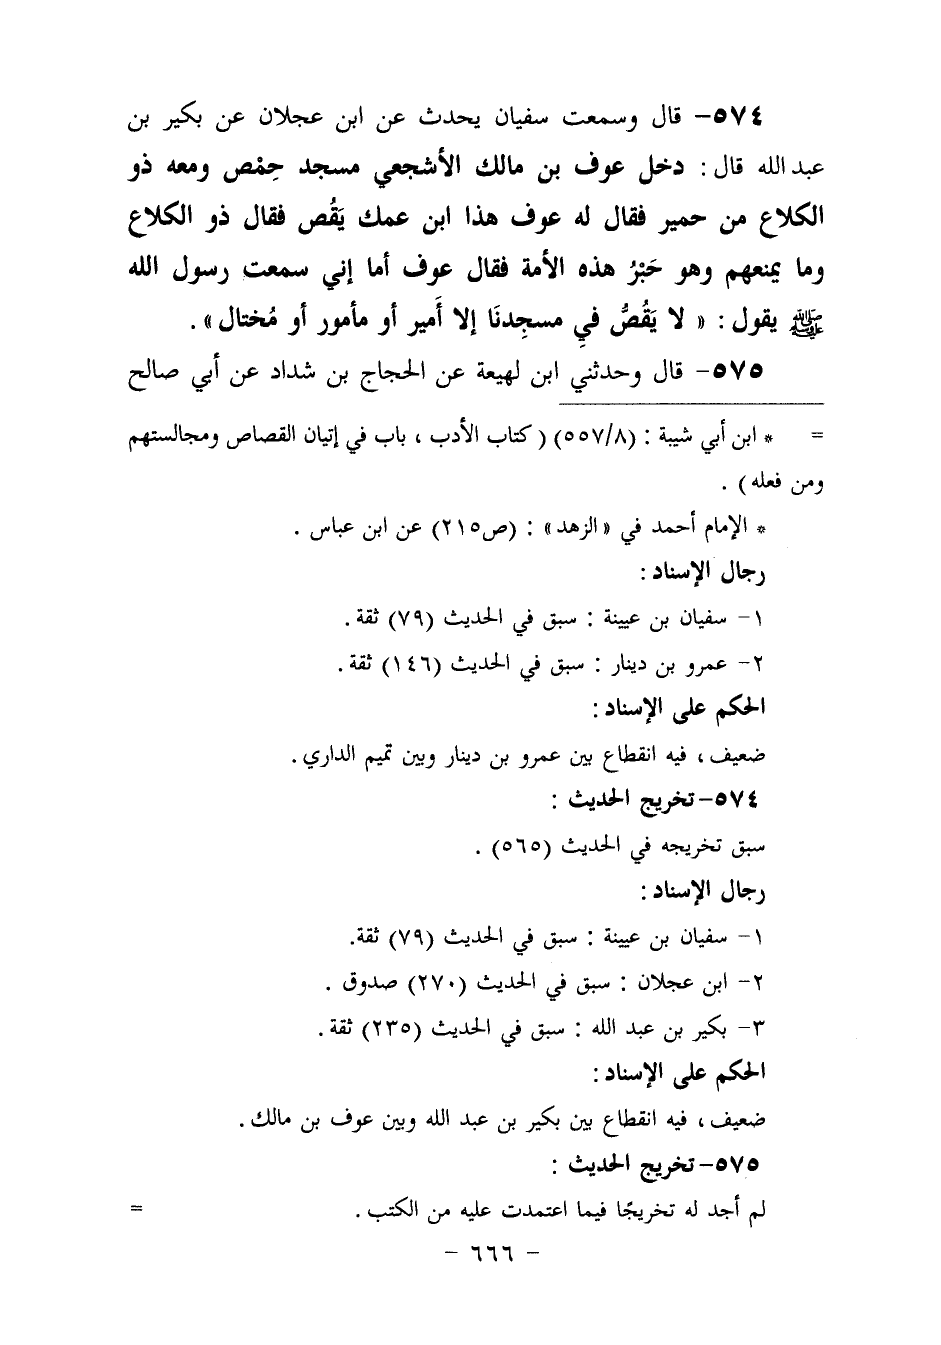 ٥٧٤– قال وسمعت سفيان يحدث عن ابن عجلان عن بكير بن
عبد الله قال : دخل عوف بن مالك الأشجعي مسجد حِمْص ومعه ذو
الكلاع من حمير فقال له عوف هذا ابن عمك يَقُص فقال ذو الكلاع
وما يمنعهم وهو حَبْرُ هذه الأمة فقال عوف أما إني سمعت رسول الله
ﷺ يقول : « لا يَقُصُّ في مسجِدنَا إلا أَمير أو مأمور أو مُختال » .
٥٧٥– قال وحدثني ابن لهيعة عن الحجاج بن شداد عن أبي صالح
= * ابن أبي شيبة : (٥٥٧/٨) ( كتاب الأدب ، باب في إتيان القصاص ومجالستهم
ومن فعله ) .
* الإمام أحمد في « الزهد » : (ص٢١٥) عن ابن عباس .
رجال الإسناد :
١– سفيان بن عيينة : سبق في الحديث (٧٩) ثقة .
٢– عمرو بن دينار : سبق في الحديث (١٤٦) ثقة .
الحكم على الإسناد :
ضعيف ، فيه انقطاع بين عمرو بن دينار وبين تميم الداري .
٥٧٤–تخريج الحديث :
سبق تخريجه في الحديث (٥٦٥) .
رجال الإسناد :
١– سفيان بن عيينة : سبق في الحديث (٧٩) ثقة.
٢– ابن عجلان : سبق في الحديث (٢٧٠) صدوق .
٣– بكير بن عبد الله : سبق في الحديث (٢٣٥) ثقة.
الحكم على الإسناد :
ضعيف ، فيه انقطاع بين بكير بن عبد الله وبين عوف بن مالك .
٥٧٥–تخريج الحديث :
لم أجد له تخريجًا فيما اعتمدت عليه من الكتب . =
– ٦٦٦ –